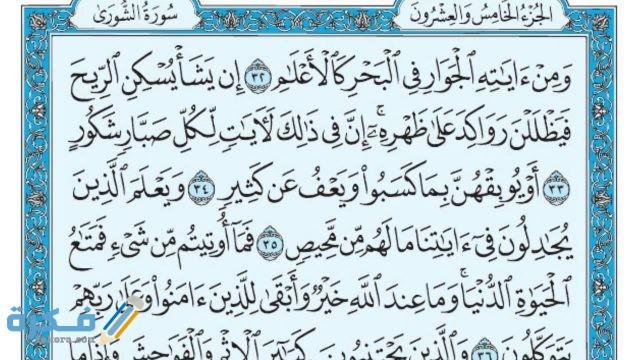 الجُزْءُ الخَامِسُ وَالعِشْرُونَ سُورَةُ الشُّورَىٰ
وَمِنْ ءَايَٰتِهِ الْجَوَارِ فِي الْبَحْرِ كَالْأَعْلَٰمِ ٣٢ إِن يَشَأْ يُسْكِنِ الرِّيحَ
فَيَظْلَلْنَ رَوَاكِدَ عَلَىٰ ظَهْرِهِۦٓ ۚ إِنَّ فِي ذَٰلِكَ لَأٓيَٰتٍ لِّكُلِّ صَبَّارٍ شَكُورٍ
٣٣ أَوْ يُوبِقْهُنَّ بِمَا كَسَبُوا۟ وَيَعْفُ عَن كَثِيرٍ ٣٤ وَيَعْلَمَ الَّذِينَ
يُجَٰدِلُونَ فِيٓ ءَايَٰتِنَا مَا لَهُم مِّن مَّحِيصٍ ٣٥ فَمَآ أُوتِيتُم مِّن شَيْءٍ فَمَتَٰعُ
الْحَيَوٰةِ الدُّنْيَا ۖ وَمَا عِندَ اللَّهِ خَيْرٌ وَأَبْقَىٰ لِلَّذِينَ ءَامَنُوا۟ وَعَلَىٰ رَبِّهِمْ
يَتَوَكَّلُونَ ٣٦ وَالَّذِينَ يَجْتَنِبُونَ كَبَٰٓئِرَ الْإِثْمِ وَالْفَوَٰحِشَ وَإِذَا مَا
فكرة